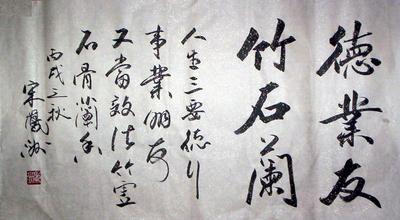 德業友
竹石蘭
人生三要德行
事業朋友
又當效法竹虛
石骨蘭香
丙戌秋
宋